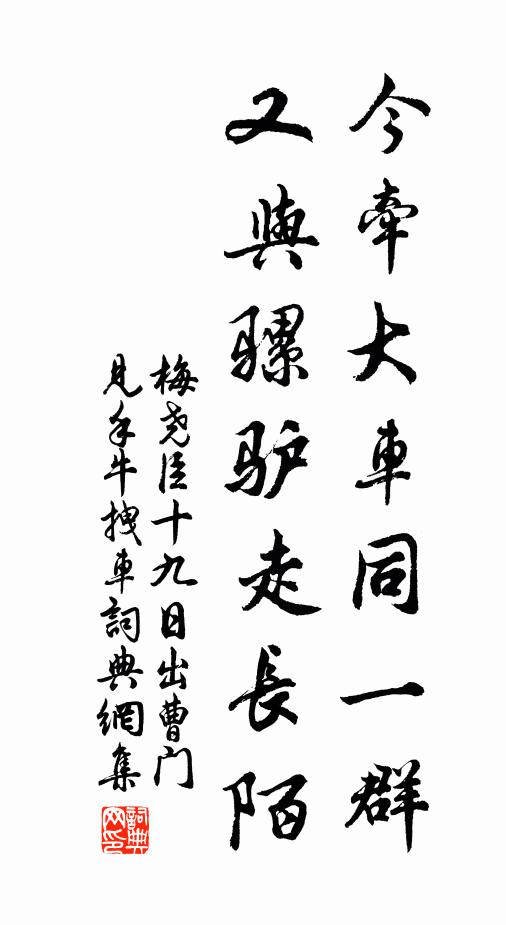 今牽大車同一群
又與骡驴走長陌
梅尧臣十九日出曹门
見水牛拽車詞典網集
詞典网印